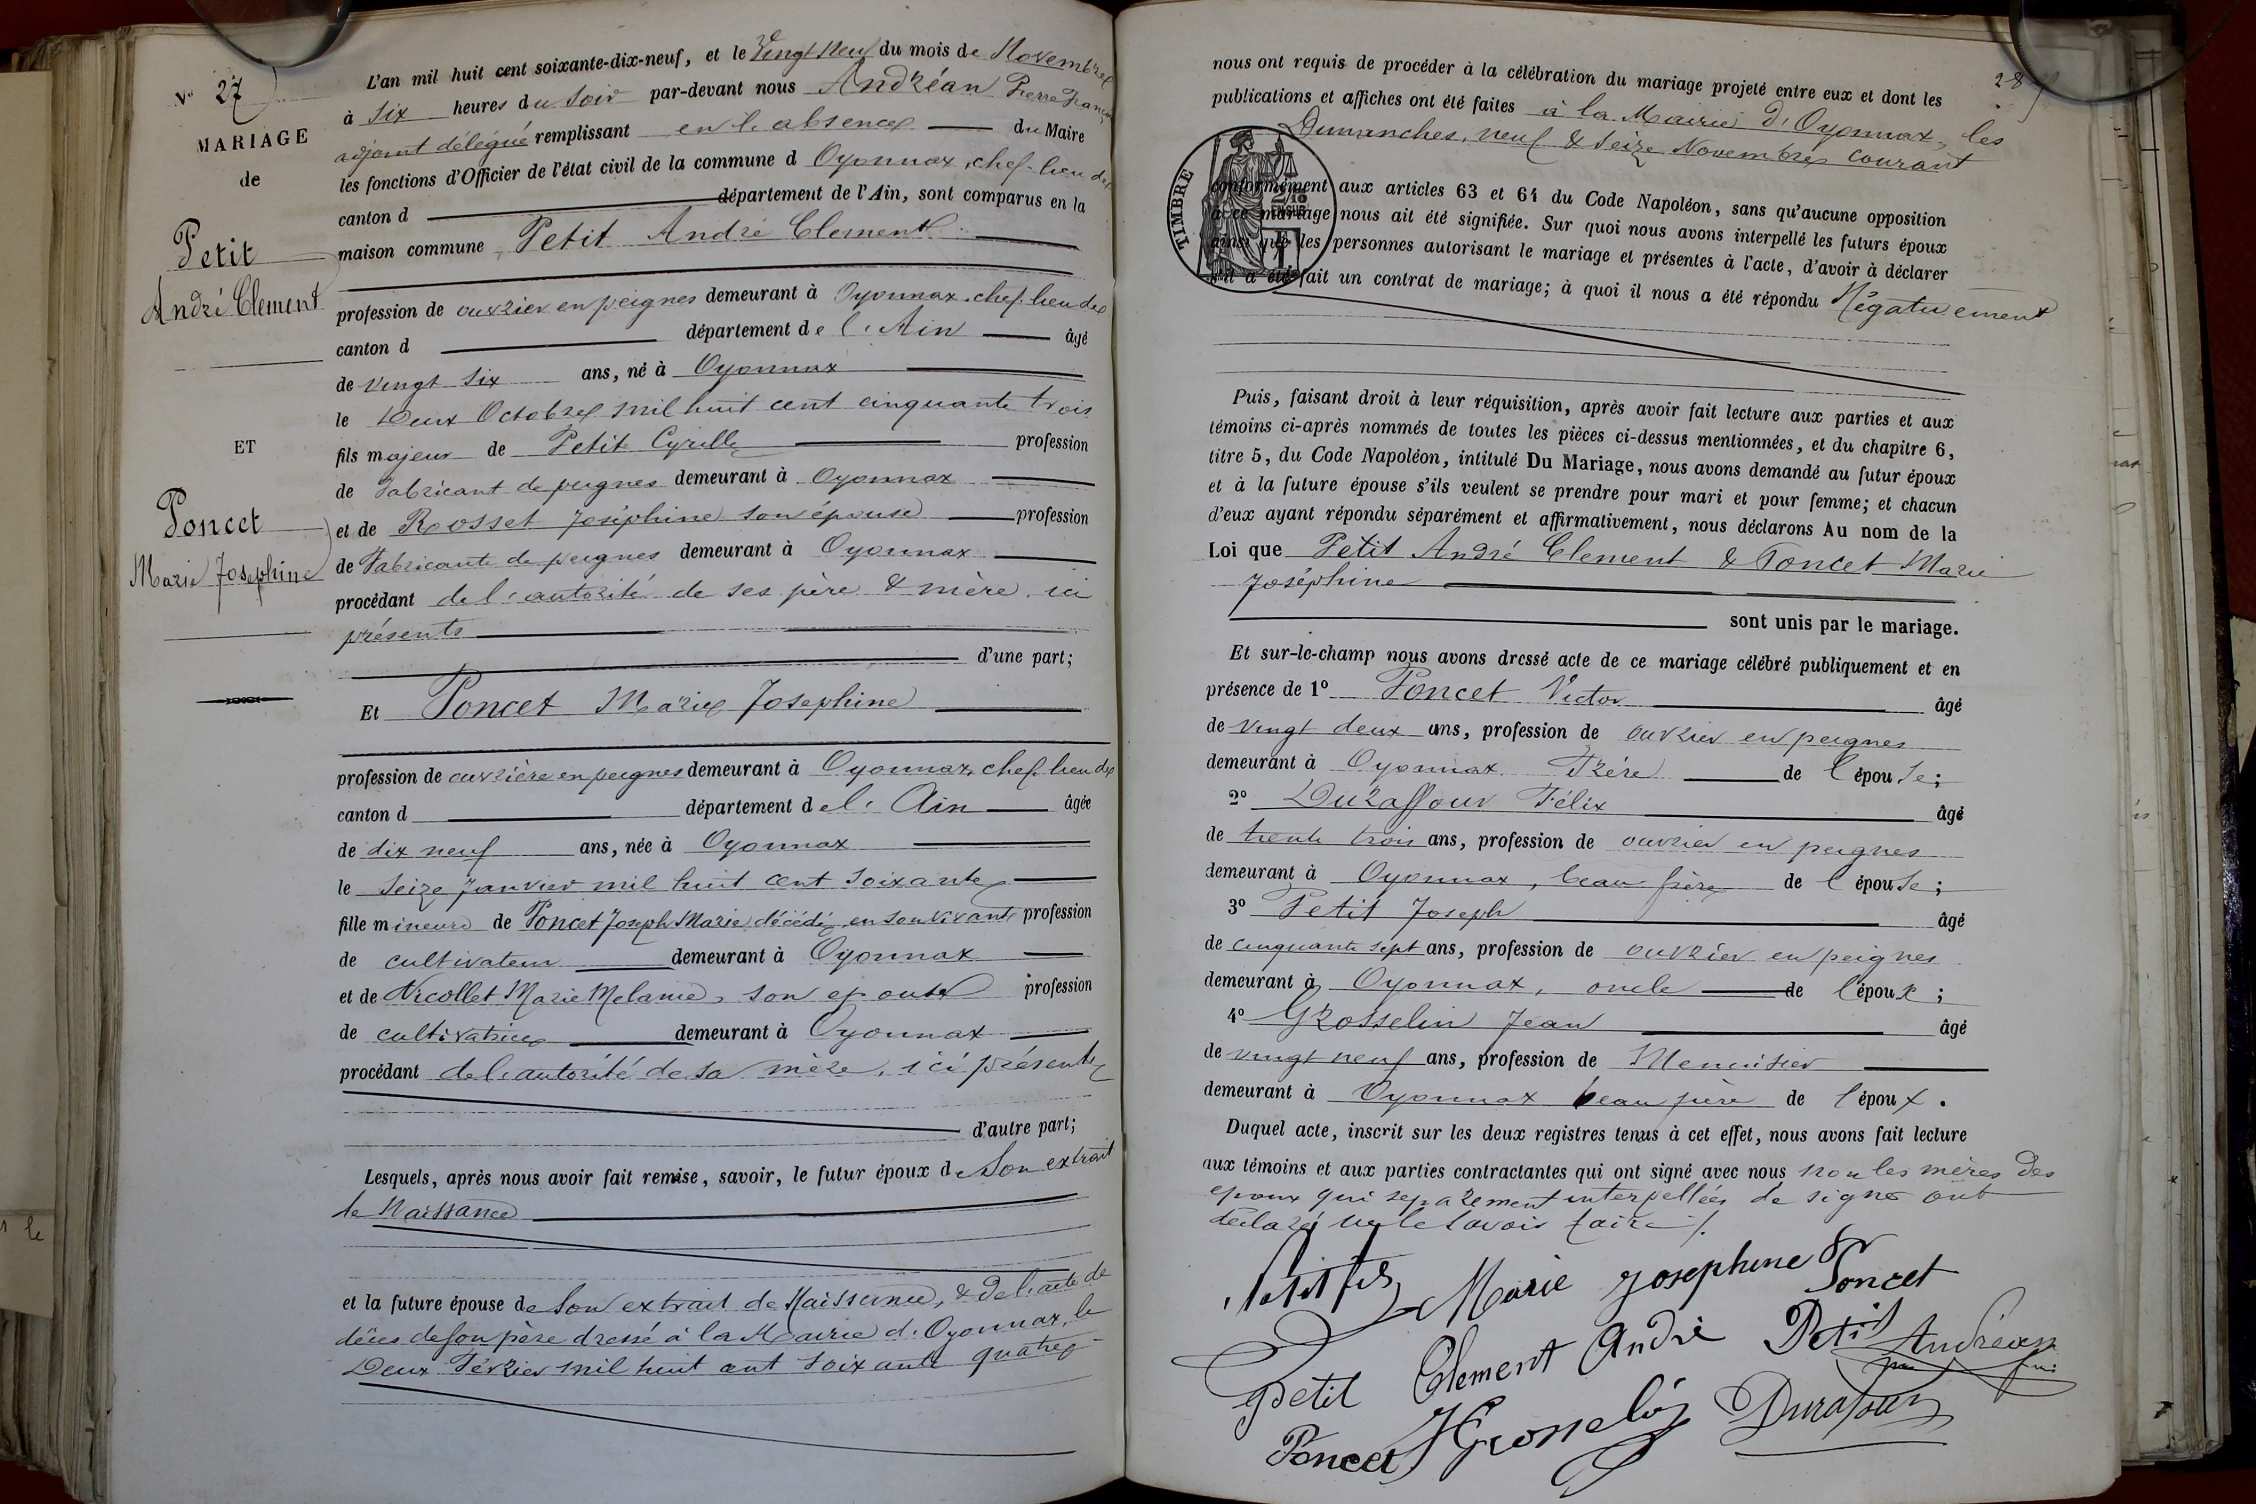 N° 27
MARIAGE
de
Petit
André Clement
ET
Poncet
Marie Josephine
L'an mil huit cent soixante-dix-neuf, et le Vingt Neuf du mois de Novembre
à Six heures du Soir par-devant nous Andréan Pierre François
adjoint délégué remplissant en l'absence du Maire
les fonctions d'Officier de l'état civil de la commune d Oyonnax, chef-lieu de
canton d département de l'Ain, sont comparus en la
maison commune Petit André Clement
profession de ouvrier en peignes demeurant à Oyonnax, chef-lieu de
canton d département de l'Ain âgé
de vingt six ans, né à Oyonnax
le Deux Octobre mil huit cent cinquante trois
fils majeur de Petit Cyrille profession
de fabricant de peignes demeurant à Oyonnax
et de Rosset Joséphine son épouse profession
de Fabricante de peignes demeurant à Oyonnax
procédant de l'autorité de ses père & mère, ici
présents
d'une part;
Et Poncet Marie Josephine
profession de ouvrière en peignes demeurant à Oyonnax, chef-lieu de
canton d département de l'Ain âgée
de dix neuf ans, née à Oyonnax
le Seize Janvier mil huit cent soixante
fille mineure de Poncet Joseph Marie décédé, en son vivant profession
de cultivateur demeurant à Oyonnax
et de Nicollet Marie Melanie, son epouse profession
de cultivatrice demeurant à Oyonnax
procédant de l'autorité de sa mère, ici présente
d'autre part;
Lesquels, après nous avoir fait remise, savoir, le futur époux de Son extrait
de Naissance
et la future épouse de Son extrait de Naissance, & de l'acte de
décès de son père dressé à la Mairie d'Oyonnax, le
Deux Février mil huit cent soixante quatre
28
nous ont requis de procéder à la célébration du mariage projeté entre eux et dont les
publications et affiches ont été faites à la Mairie d'Oyonnax, les
Dimanches, neuf & seize Novembre courant
TIMBRE
conformément aux articles 63 et 64 du Code Napoléon, sans qu'aucune opposition
à ce mariage nous ait été signifiée. Sur quoi nous avons interpellé les futurs époux
ainsi que les personnes autorisant le mariage et présentes à l'acte, d'avoir à déclarer
s'il a été fait un contrat de mariage; à quoi il nous a été répondu Négativement
Puis, faisant droit à leur réquisition, après avoir fait lecture aux parties et aux
témoins ci-après nommés de toutes les pièces ci-dessus mentionnées, et du chapitre 6,
titre 5, du Code Napoléon, intitulé Du Mariage, nous avons demandé au futur époux
et à la future épouse s'ils veulent se prendre pour mari et pour femme; et chacun
d'eux ayant répondu séparément et affirmativement, nous déclarons Au nom de la
Loi que Petit André Clement & Poncet Marie
Joséphine
sont unis par le mariage.
Et sur-le-champ nous avons dressé acte de ce mariage célébré publiquement et en
présence de 1° Poncet Victor âgé
de vingt deux ans, profession de ouvrier en peignes
demeurant à Oyonnax frère de l'épouse;
2° Duraffour Félix âgé
de trente trois ans, profession de ouvrier en peignes
demeurant à Oyonnax, beau frère de l'épouse;
3° Petit Joseph âgé
de cinquante sept ans, profession de ouvrier en peignes
demeurant à Oyonnax, oncle de l'époux;
4° Grosselin Jean âgé
de vingt neuf ans, profession de Menuisier
demeurant à Oyonnax beau frère de l'époux.
Duquel acte, inscrit sur les deux registres tenus à cet effet, nous avons fait lecture
aux témoins et aux parties contractantes qui ont signé avec nous non les mères des
epoux qui séparement interpellées de signe ont
déclaré ne le savoir faire
Petit fils Marie Josephine Poncet
Petit Clement André Petit Andréan
Poncet Grosselin Durafour